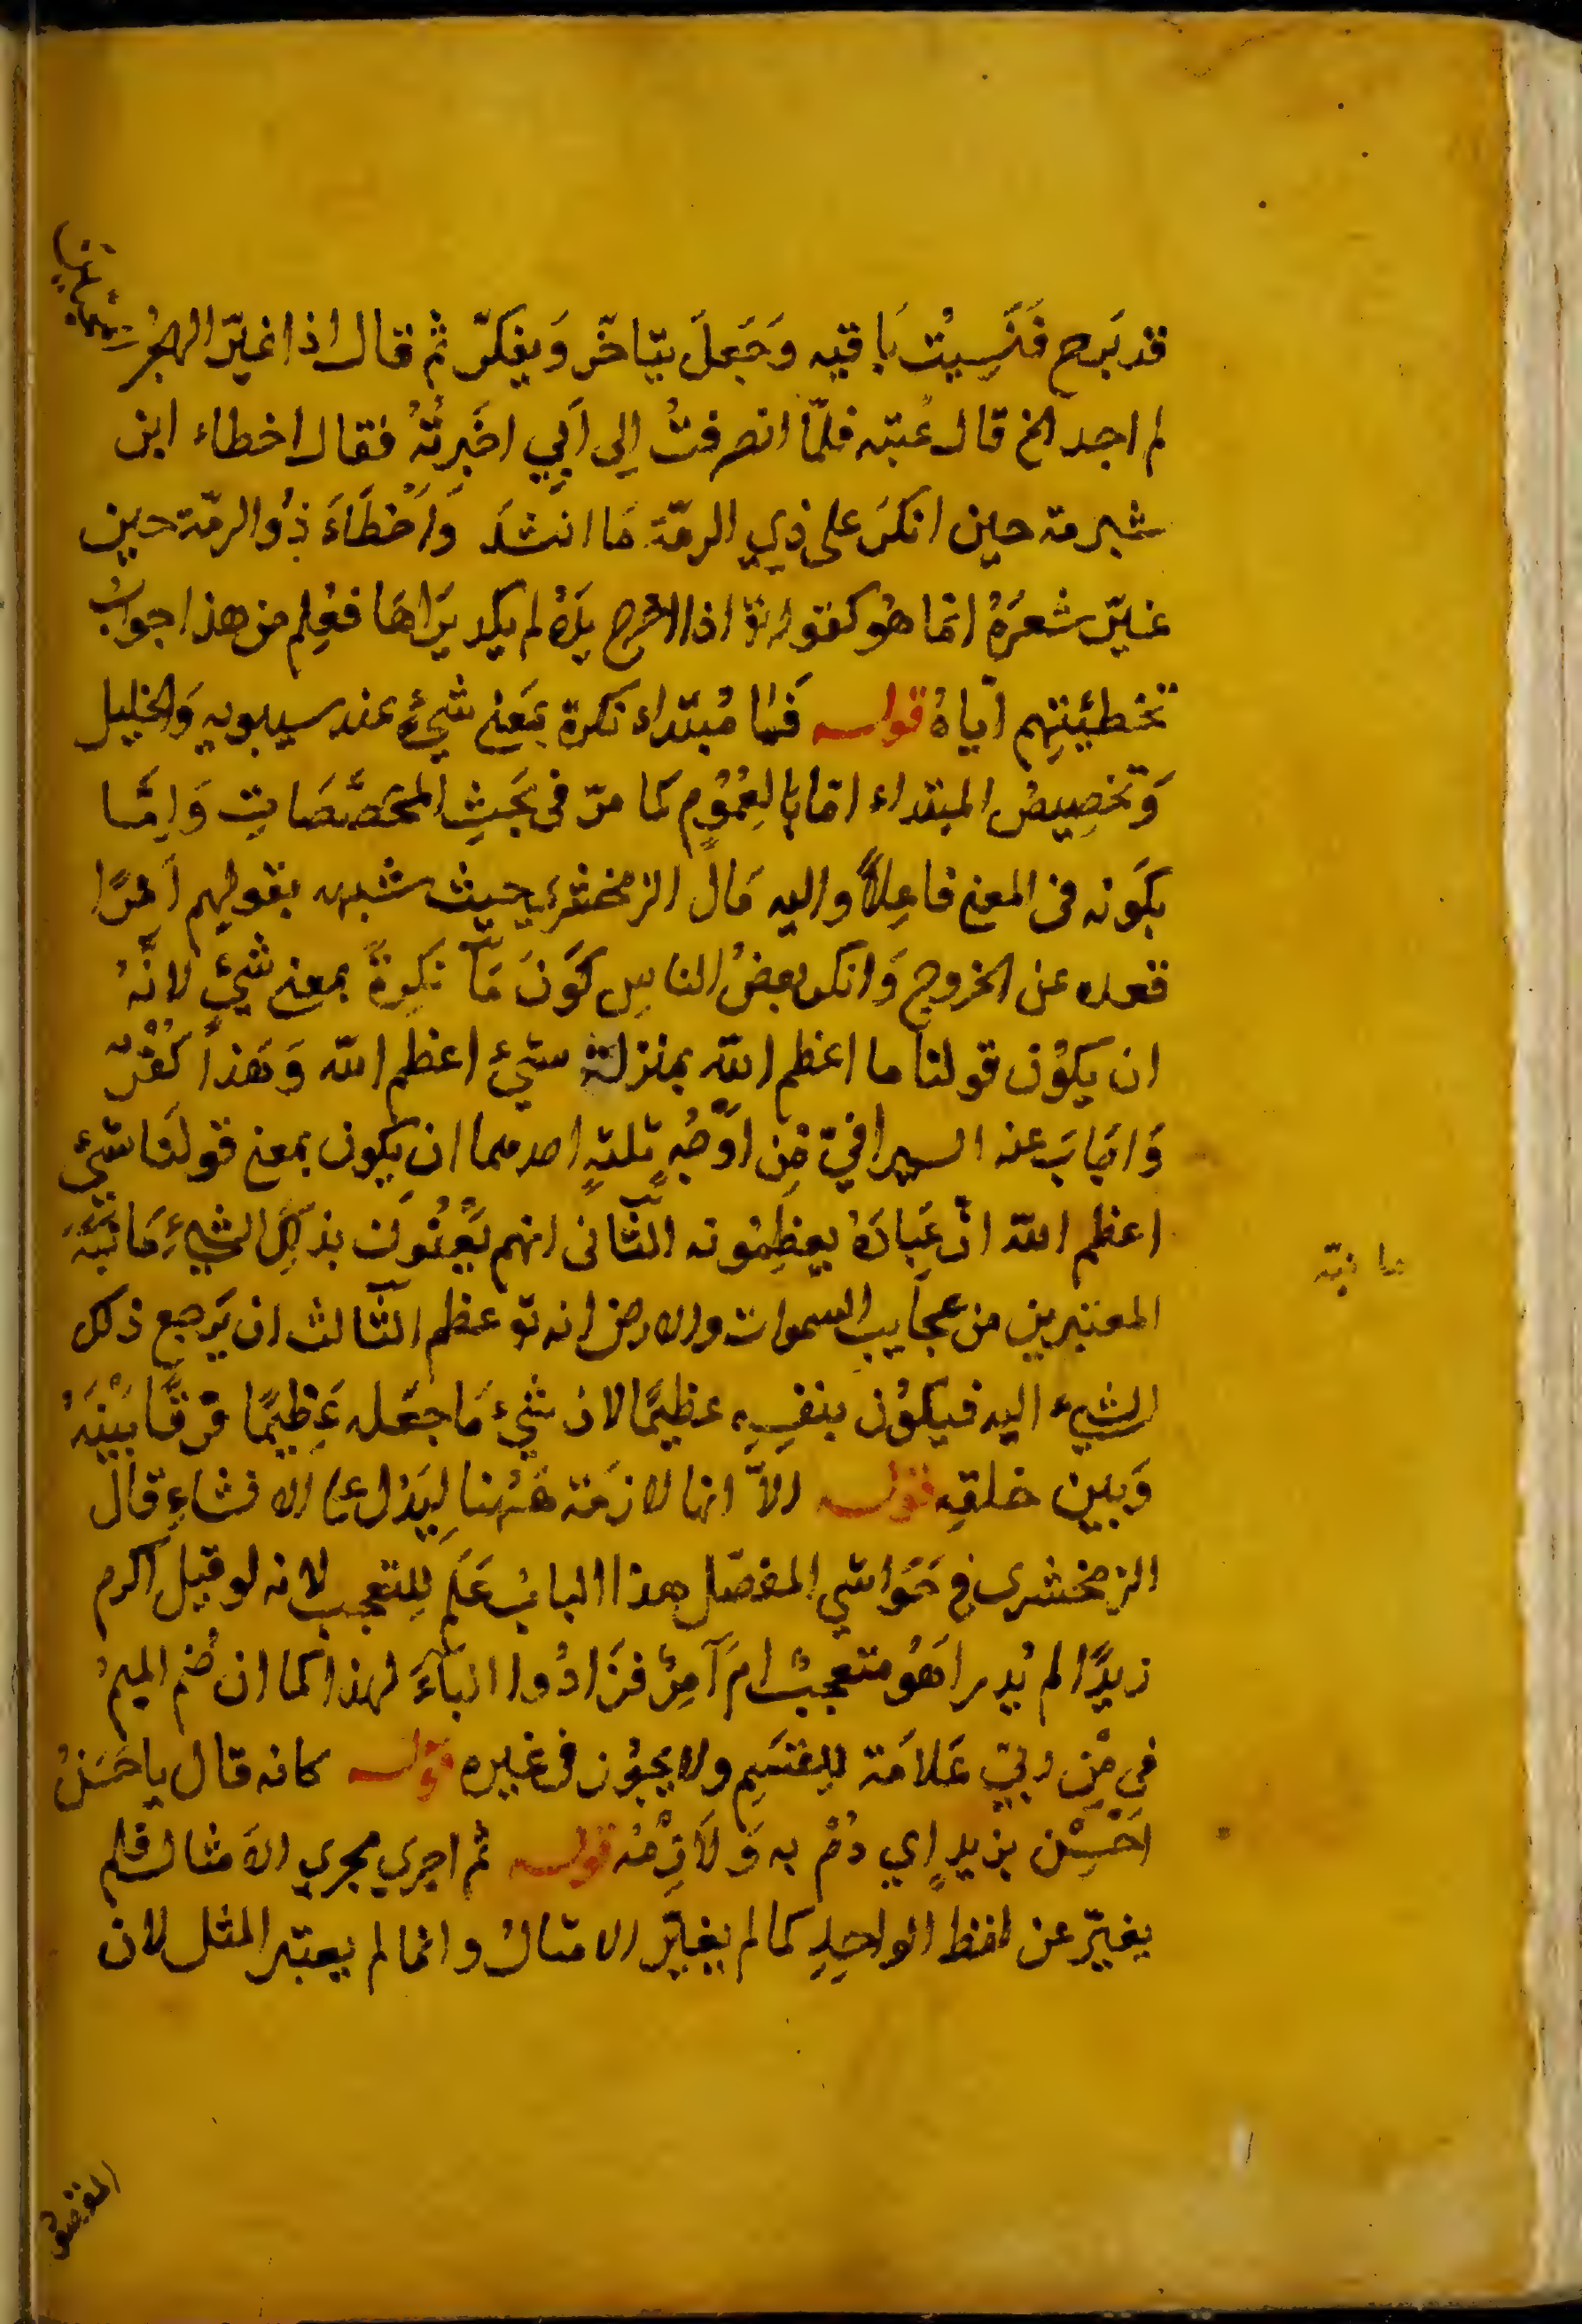 قد بَرح فَنَسِيْتُ بَاقيه وَجَعَلَ يتاخّر وَيفكرّ ثم قال اذا غيّر الهجْرُ
لم اجد الخ قال عُتبه فلمّا انصرفتُ إلى اَبي اخبرتُهُ فقال اخطاء ابن
شبرمة حين انكرَ على ذي الرمّة مَا انشدَ وَاَخْطَاءَ ذُو الرمّة حين
غيّر شعرَهُ انما هُو كقوله تع اذا اخرج يدَهُ لم يكد يَراهَا فعُلم من هذا جوابُ
تخطئتهِم اَيّاهُ قولــه فما مُبتداء نكرة بمَعنى شيْءٍ عند سيبويه وَالخليل
وَتخصِيصُ المبتداء امّا بالعُمُومِ كما مرّ في بَحثِ المخَصّصَاتِ وَاِمَّا
بكَونه في المعنى فاعِلاً واليه مَالَ الزمخشري حيث شبهه بقولهم اَمرًا
قعده عن الخروج وَانكر بعضُ الناسِ كَونَ مَا نكِرةً بمعنى شيْءٍ لانّهُ
ان يكوُن قولنا ما اعظم الله بمنزلة شيْءٌ اعظم الله وَهَذا كُفْرٌ
وَاجَابَ عنه السيرافيّ مِن اَوْجُهٍ ثلثهٍ احدهما ان يكون بمعنى قولنَا شيْءٌ
اعظم الله انّ عِبَادَهُ يعظِمُونه الثّانى انهم يَعْنُونَ بذلِكَ الشيءِ مَا نبّهَ
المعتبرين من عجَايبِ السموات والارض انه تع عظم الثّالث ان يَرجع ذلك
الشيءُ اليه فيكوُن بنفسِهِ عظيمًا لان شيْءٌ مَا جعَله عَظِيمًا فرقًا بَيْنَهُ
وَبين خلقِه قولــه الاّ انها لازمَة هَهُنا لِيَدُل على الانشاءِ قال
الزمخشرى في حَوَاشي المفصّل هذا البابُ عَلَم لِلتعجبِ لانه لو قيل اكرم
زيدًا لم يُدر اَهُو متعجبٌ ام آمِرٌ فزَادُوا البآءَ لهذا كما ان ضُم الميمُ
في مُِن ربّي عَلامَة لِلقسَمِ ولا يجُوُز في غيره قولــه كانه قال يا حَسَنُ
اَحْسِنْ بزيدٍ اي دُمْ به وَلازِمْهُ قولــه ثم اجري مجري الامثال فلم
يغيّر عن لفظ الواحِدِ كما لم يغيّر الامثالُ وانما لم يعتبر المثل لان
ما نبّه